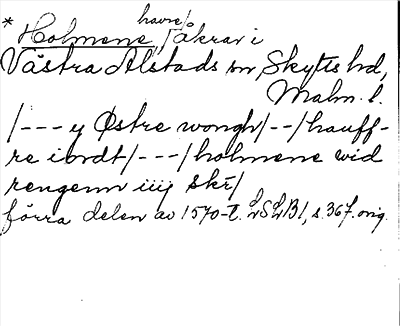 * Holmene, havre/åkrar i
Västra Alstads sn, Skytts hd,
Malm. l.
/--- y Østre wongh/--/hauff-
re iordt/---/holmene wid
rengenn iiij skr/
förra delen av 1570-t. LSLB1, s. 367. orig.